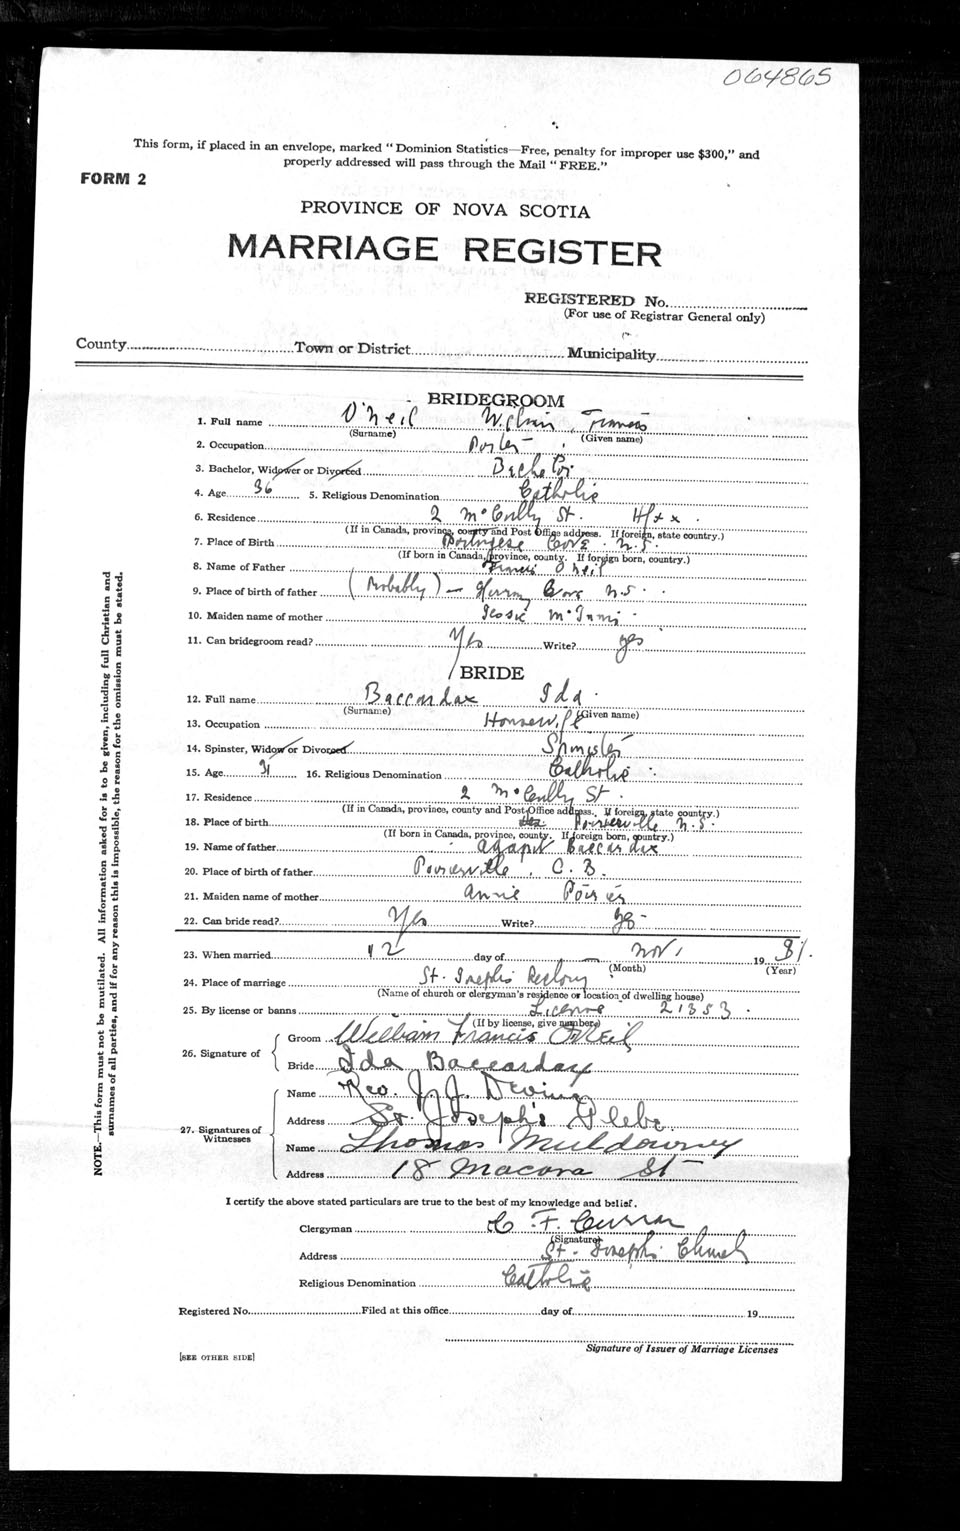 064865
This form, if placed in an envelope, marked "Dominion Statistics—Free, penalty for improper use $300," and
properly addressed will pass through the Mail "FREE."
FORM 2
PROVINCE OF NOVA SCOTIA
MARRIAGE REGISTER
REGISTERED No.
(For use of Registrar General only)
County Town or District Municipality
BRIDEGROOM
1. Full name O'Neil William Francis
(Surname) (Given name)
2. Occupation Porter
3. Bachelor, Widower or Divorced Bachelor
4. Age 36 5. Religious Denomination Catholic
6. Residence 2 McCully St. Hfx.
(If in Canada, province, county and Post Office address. If foreign, state country.)
7. Place of Birth Portugese Cove N.S.
(If born in Canada, province, county. If foreign born, country.)
8. Name of Father Francis O'Neil
9. Place of birth of father (Probably) — Herring Cove N.S.
10. Maiden name of mother Jessie McInnis
11. Can bridegroom read? Yes Write? yes
BRIDE
12. Full name Baccardax Ida
(Surname) (Given name)
13. Occupation Housewife
14. Spinster, Widow or Divorced Spinster
15. Age 31 16. Religious Denomination Catholic
17. Residence 2 McCully St.
(If in Canada, province, county and Post Office address. If foreign, state country.)
18. Place of birth Poirierville N.S.
(If born in Canada, province, county. If foreign born, country.)
19. Name of father Agapit Baccardax
20. Place of birth of father Poirierville, C.B.
21. Maiden name of mother Annie Poirier
22. Can bride read? Yes Write? yes
23. When married 12 day of Nov. 1931.
(Month) (Year)
24. Place of marriage St. Joseph's Rectory
(Name of church or clergyman's residence or location of dwelling house)
25. By license or banns License 21353.
(If by license, give number)
26. Signature of
Groom William Francis O'Neil
Bride Ida Baccardax
27. Signatures of Witnesses
Name Rev. J. J. Devine
Address St. Joseph's Glebe
Name Thomas Muldowney
Address 18 Macara St
I certify the above stated particulars are true to the best of my knowledge and belief.
Clergyman C. F. Curran
(Signature)
Address St. Joseph's Church
Religious Denomination Catholic
Registered No. Filed at this office day of 19
Signature of Issuer of Marriage Licenses
[SEE OTHER SIDE]
NOTE.—This form must not be mutilated. All information asked for is to be given, including full Christian and
surnames of all parties, and if for any reason this is impossible, the reason for the omission must be stated.